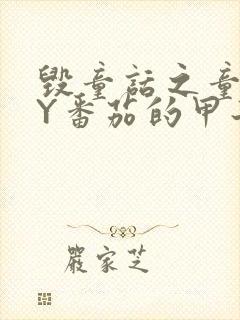 毁童话之童
Y番茄的甲
嚴家芝